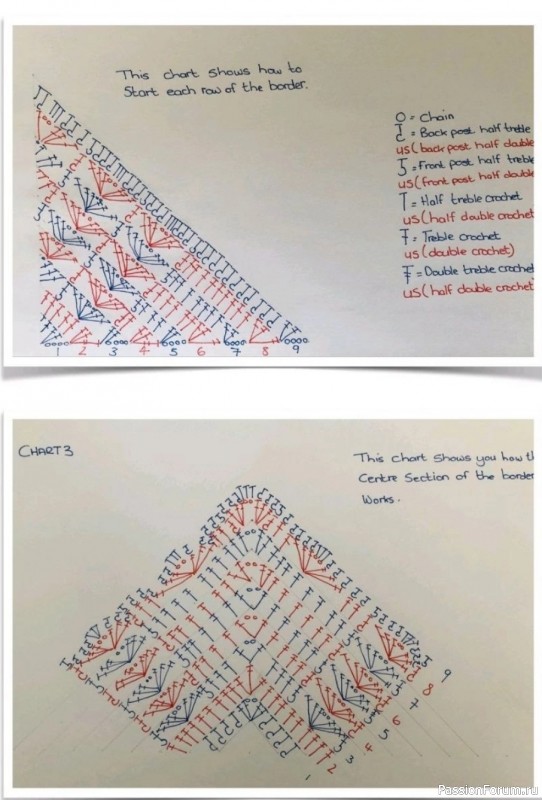 This chart shows how to
Start each row of the border.
O = Chain
= Back post half treble
US (back post half double
= Front post half treble
US (front post half double
= Half treble crochet
US (half double crochet
= Treble crochet
US (double crochet)
= Double treble crochet
US (half double crochet
1 2 3 4 5 6 7 8 9
CHART 3
This chart shows you how th
Centre Section of the border
Works.
9
8
7
6
5
4
3
2
1
PassionForum.ru